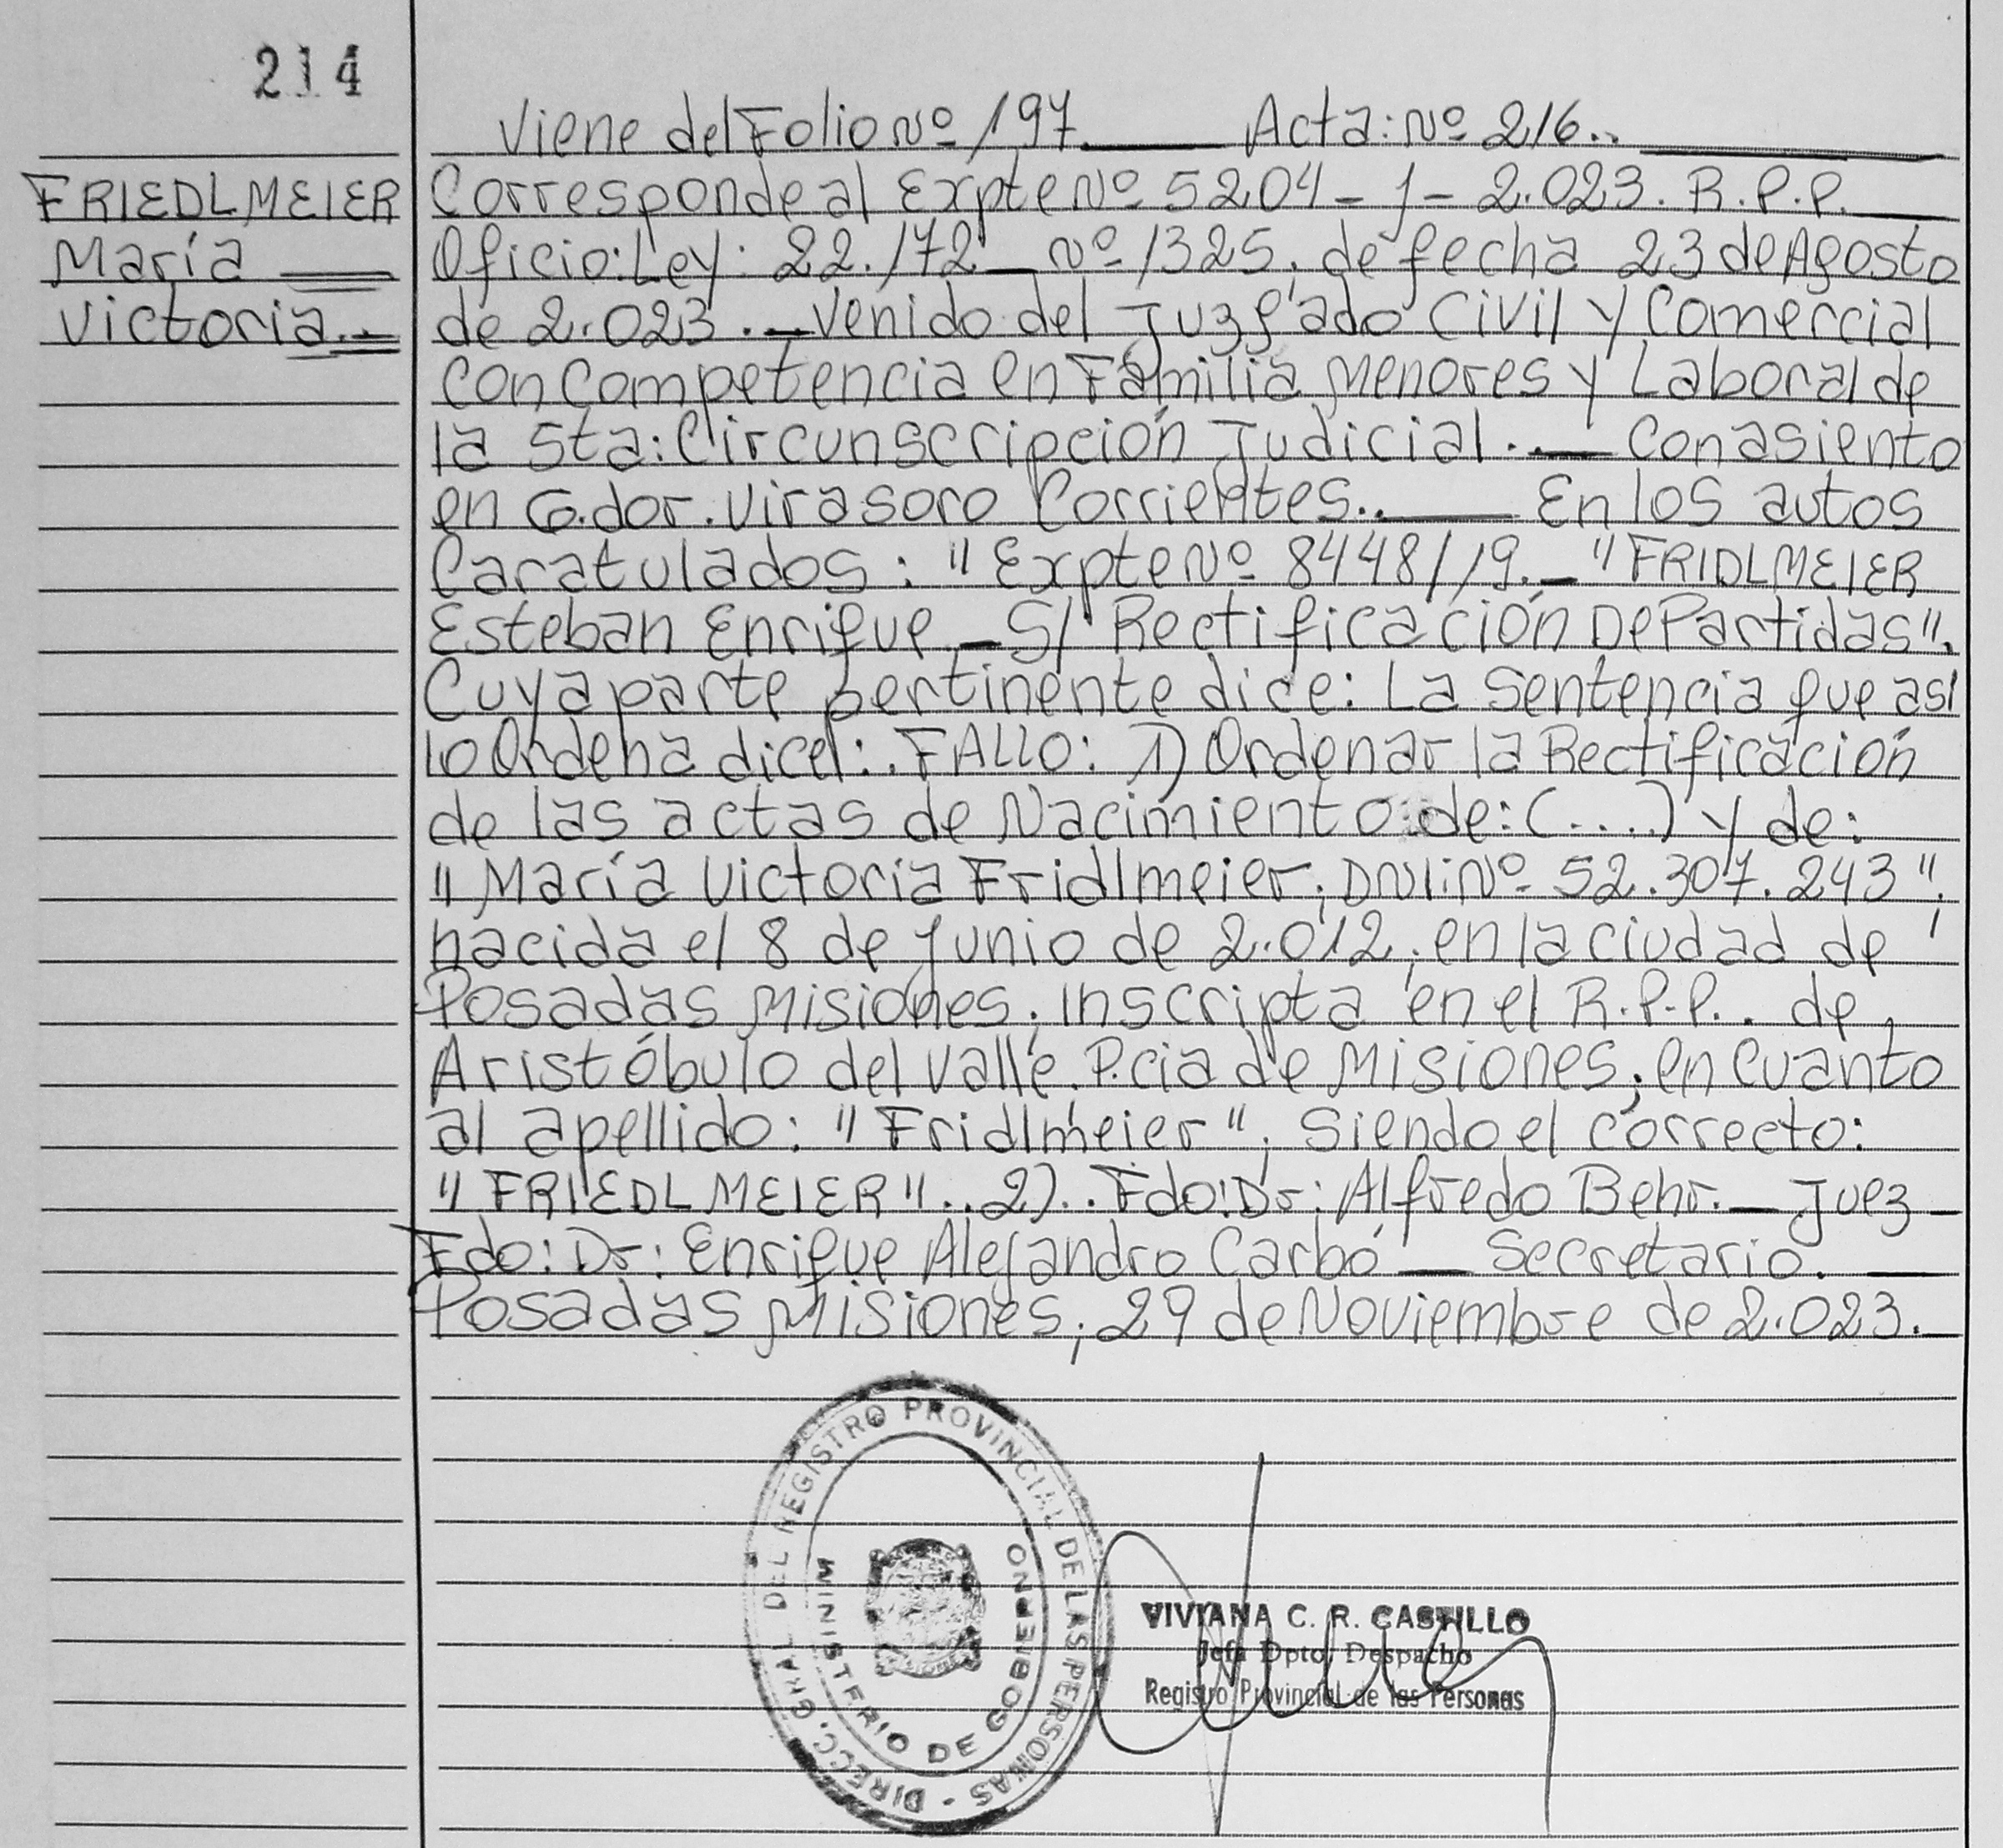 214
Viene del Folio Nº 197.____ Acta: Nº 216..____
FRIEDLMEIER
María
Victoria.
Corresponde al Expte Nº 5204 - J - 2.023. R.P.P.
Oficio: Ley: 22.172 _ Nº 1325, de fecha 23 de Agosto
de 2.023 ._ Venido del Juzgado Civil y Comercial
con Competencia en Familia Menores y Laboral de
la 5ta: Circunscripción Judicial.._ Con asiento
en G.dor. Virasoro Corrientes..__ En los autos
Caratulados: "Expte Nº 8448/19._ "FRIDLMEIER
Esteban Enrique _ S/ Rectificación De Partidas".
Cuya parte pertinente dice: La Sentencia que así
lo Ordena dice: . FALLO: 1) Ordenar la Rectificación
de las actas de Nacimiento de: (....) y de:
"María Victoria Fridlmeier, DNI: Nº 52.307.243",
nacida el 8 de Junio de 2.012, en la ciudad de
Posadas Misiones, inscripta en el R.P.P.. de
Aristóbulo del Valle. P.cia de Misiones, en cuanto
al apellido: "Fridlmeier", Siendo el correcto:
"FRIEDLMEIER"..2).. Fdo: Dr: Alfredo Behr._ Juez _
Fdo: Dr: Enrique Alejandro Carbó _ Secretario. _
Posadas Misiones, 29 de Noviembre de 2.023._
DIRECC. GRAL. DEL REGISTRO PROVINCIAL DE LAS PERSONAS -
MINISTERIO DE GOBIERNO
VIVIANA C. R. CASTILLO
Jefa Dpto. Despacho
Registro Provincial de las Personas